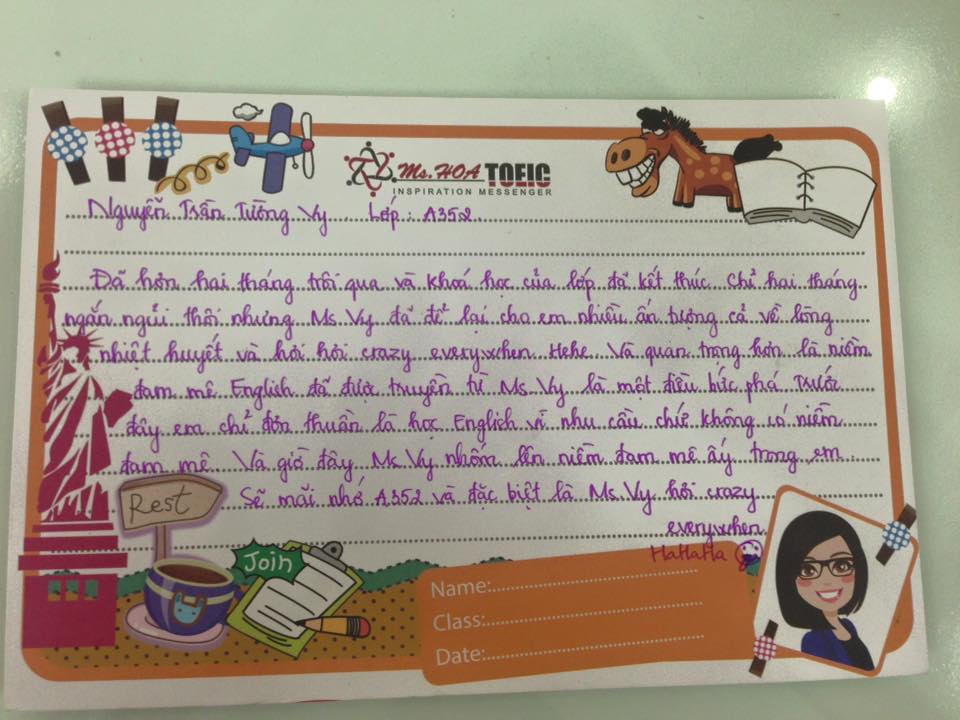 Ms. HOA TOEIC
INSPIRATION MESSENGER
Nguyễn Trần Tường Vy Lớp : A352
Đã hơn hai tháng trôi qua và khoá học của lớp đã kết thúc. Chỉ hai tháng
ngắn ngủi thôi nhưng Ms. Vy đã để lại cho em nhiều ấn tượng cả về lòng
nhiệt huyết và hơi hơi crazy everywhen Hehe. Và quan trọng hơn là niềm
đam mê English đã được truyền từ Ms. Vy là một điều bức phá. Trước
đây em chỉ đơn thuần là học English vì nhu cầu chứ không có niềm
đam mê. Và giờ đây Ms. Vy nhốm lên niềm đam mê ấy trong em.
Sẽ mãi nhớ A352 và đặc biệt là Ms. Vy hơi crazy
everywhen
HaHaHa
Rest
Join
Name:
Class:
Date: